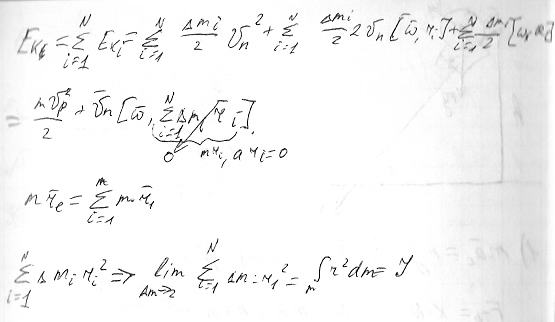 E_{K_6} = \sum_{i=1}^{N} E_{K_i} = \sum_{i=1}^{N} \frac{\Delta m_i}{2} v_n^2 + \sum_{i=1}^{N} \frac{\Delta m_i}{2} 2 v_n [\bar{\omega}, r_i] + \sum_{i=1}^{N} \frac{\Delta m}{2} [\omega,
= \frac{m v_p^2}{2} + \bar{v}_n [\bar{\omega}, \sum_{i=1}^{N} \Delta m \bar{r}_i].
0 m r_i, a r_i = 0
m \bar{r}_e = \sum_{i=1}^{m} m \cdot \bar{r}_1
\sum_{i=1}^{N} \Delta m_i r_i^2 => \lim_{\Delta m \to 2} \sum_{i=1}^{N} \Delta m_i r_1^2 = \int_m r^2 dm = J